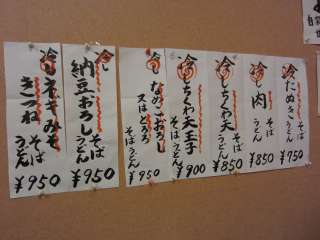 冷したぬき そば うどん ¥750
冷し肉 そば うどん ¥850
冷しちくわ天 そば うどん ¥850
冷しちくわ天玉子 そば うどん ¥900
冷し なめこおろし 又はとろろ そば うどん ¥950
冷し 納豆おろし そば うどん ¥950
冷し ネギみそ きつね そば うどん ¥950